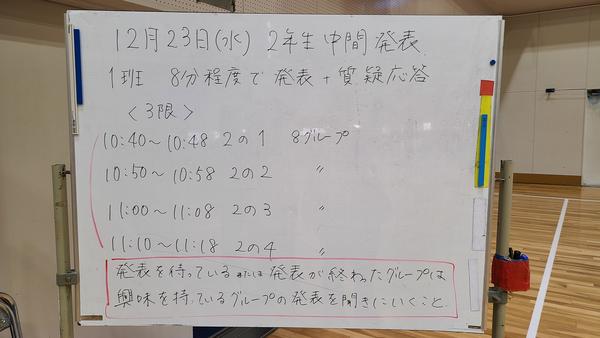 12月23日(水) 2年生中間発表
1班 8分程度で発表+質疑応答
<3限>
10:40～10:48 2の1 8グループ
10:50～10:58 2の2 〃
11:00～11:08 2の3 〃
11:10～11:18 2の4 〃
発表を待っているまたは発表が終わったグループは
興味を持っているグループの発表を聞きにいくこと